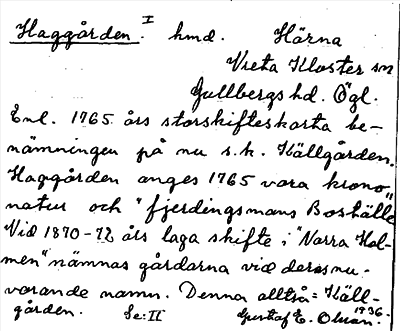 Haggården. I hmd. Härna
Vreta Kloster sn
Gullbergs hd. Ögl.
Enl. 1765 års storskifteskarta be-
nämningen på nu s.k. Källgården.
Haggården anges 1765 vara krono
natur och "fjerdingsmans Boställe"
Vid 1870-72 års laga skifte i "Norra Hol-
men" nämnas gårdarna vid deras nu-
varande namn. Denna alltså = Käll-
gården. Se: II Gustaf E. Olsson. 1936.